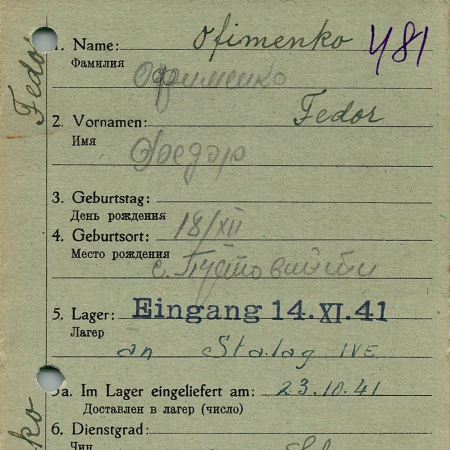 1. Name: Ofimenko 481
Фамилия Офименко
2. Vornamen: Fedor
Имя Федор
3. Geburtstag:
День рождения 18/XII
4. Geburtsort:
Место рождения с.
5. Lager: Eingang 14.XI.41
Лагерь an Stalag IVE
5a. Im Lager eingeliefert am: 23.10.41
Доставлен в лагерь (число)
6. Dienstgrad:
Чин
Fedor
ko